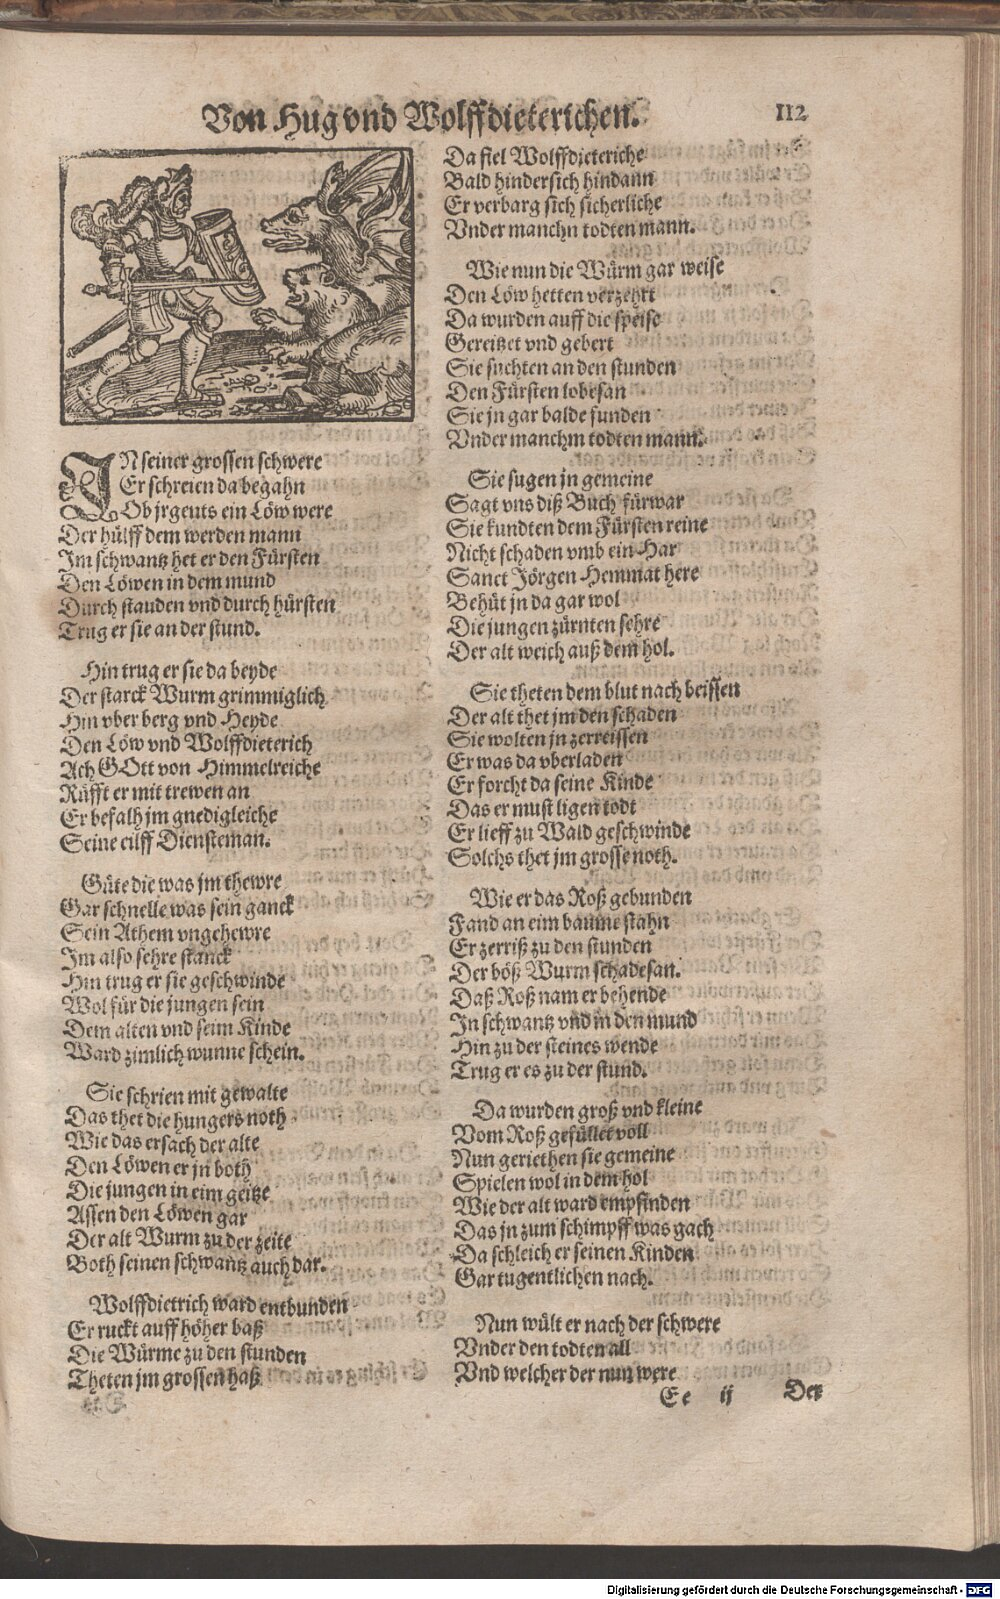 Von Hug vnd Wolffdieterichen.
112
IN seiner grossen schwere
Er schreien da begahn
Ob jrgents ein Löw were
Der hülff dem werden mann
Im schwantz het er den Fürsten
Den Löwen in dem mund
Durch stauden vnd durch hürsten
Trug er sie an der stund.
Hin trug er sie da beyde
Der starck Wurm grimmiglich
Hin vber berg vnd Heyde
Den Löw vnd Wolffdieterich
Ach GOtt von Himmelreiche
Rüfft er mit trewen an
Er befalh jm gnedigleiche
Seine eilff Diensteman.
Güte die was jm thewre
Gar schnelle was sein ganck
Sein Athem vngehewre
Im also sehre stanck
Hin trug er sie geschwinde
Wol für die jungen sein
Dem alten vnd seim Kinde
Ward zimlich wunne schein.
Sie schrien mit gewalte
Das thet die hungers noth
Wie das ersach der alte
Den Löwen er jn both
Die jungen in eim geitze
Assen den Löwen gar
Der alt Wurm zu der zeite
Both seinen schwantz auch dar.
Wolffdietrich ward entbunden
Er ruckt auff höher baß
Die Würme zu den stunden
Theten jm grossen haß
Da fiel Wolffdieteriche
Bald hindersich hindann
Er verbarg sich sicherliche
Vnder manchn todten mann.
Wie nun die Würm gar weise
Den Löw hetten verzehrt
Da wurden auff die speise
Gereitzet vnd gebert
Sie suchten an den stunden
Den Fürsten lobesan
Sie jn gar balde funden
Vnder manchm todten mann.
Sie sugen jn gemeine
Sagt vns diß Buch fürwar
Sie kundten dem Fürsten reine
Nicht schaden vmb ein Har
Sanct Jörgen Hemmat here
Behüt jn da gar wol
Die jungen zürnten sehre
Der alt weich auß dem hol.
Sie theten dem blut nach beissen
Der alt thet jm den schaden
Sie wolten jn zerreissen
Er was da vberladen
Er forcht da seine Kinde
Das er must ligen todt
Er lieff zu Wald geschwinde
Solchs thet jm grosse noth.
Wie er das Roß gebunden
Fand an eim baume stahn
Er zerriß zu den stunden
Der böß Wurm schadesan.
Daß Roß nam er behende
In schwantz vnd in den mund
Hin zu der steines wende
Trug er es zu der stund.
Da wurden groß vnd kleine
Vom Roß gefüllet voll
Nun geriethen sie gemeine
Spielen wol in dem hol
Wie der alt ward empfinden
Das jn zum schimpff was gach
Da schleich er seinen Kinden
Gar tugentlichen nach.
Nun wült er nach der schwere
Vnder den todten all
Vnd welcher der nun were
Ee ij
Der
Digitalisierung gefördert durch die Deutsche Forschungsgemeinschaft - DFG